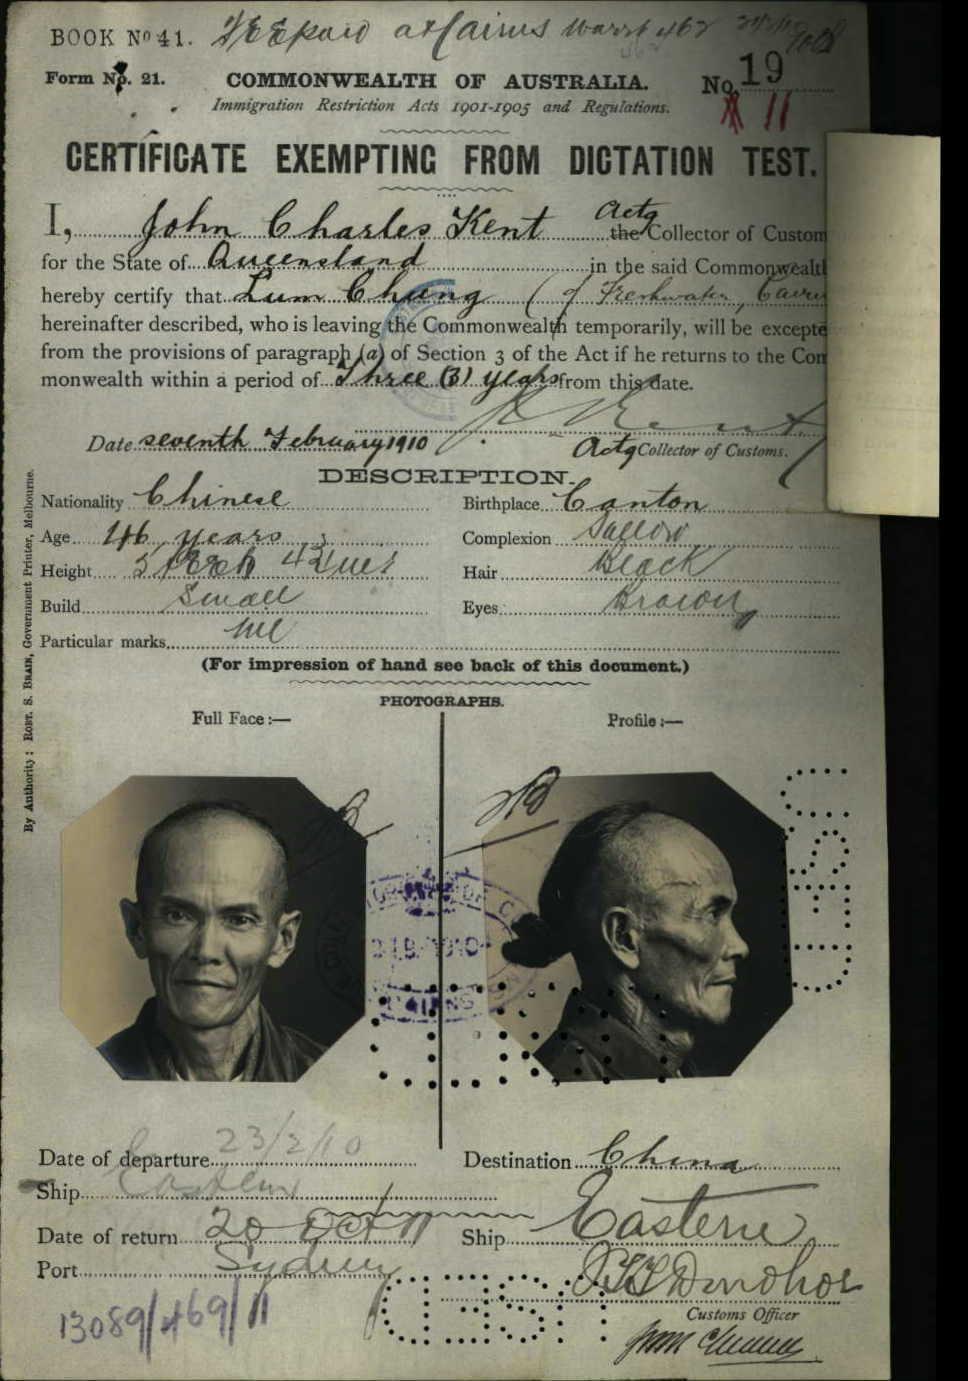 BOOK No 41.
Form No. 21.
COMMONWEALTH OF AUSTRALIA.
No. 19
Immigration Restriction Acts 1901-1905 and Regulations.
11
CERTIFICATE EXEMPTING FROM DICTATION TEST.
I, John Charles Kent Actg the Collector of Custom
for the State of Queensland in the said Commonwealt
hereby certify that Lum Chung (of Freshwater, Cairns
hereinafter described, who is leaving the Commonwealth temporarily, will be excepte
from the provisions of paragraph (a) of Section 3 of the Act if he returns to the Com
monwealth within a period of Three (3) years from this date.
Date seventh February 1910
Actg Collector of Customs.
DESCRIPTION.
Nationality Chinese Birthplace Canton
Age 46 years Complexion Sallow
Height 5 feet 4¾ ins Hair Black
Build Small Eyes Brown
Particular marks Nil
(For impression of hand see back of this document.)
PHOTOGRAPHS.
Full Face :— Profile :—
By Authority: ROBT. S. BRAIN, Government Printer, Melbourne.
CAIRNS
Date of departure 23/2/10 Destination China
Ship Eastern
Date of return 20 Oct 11 Ship Eastern
Port Sydney
Customs Officer
13089/469/11